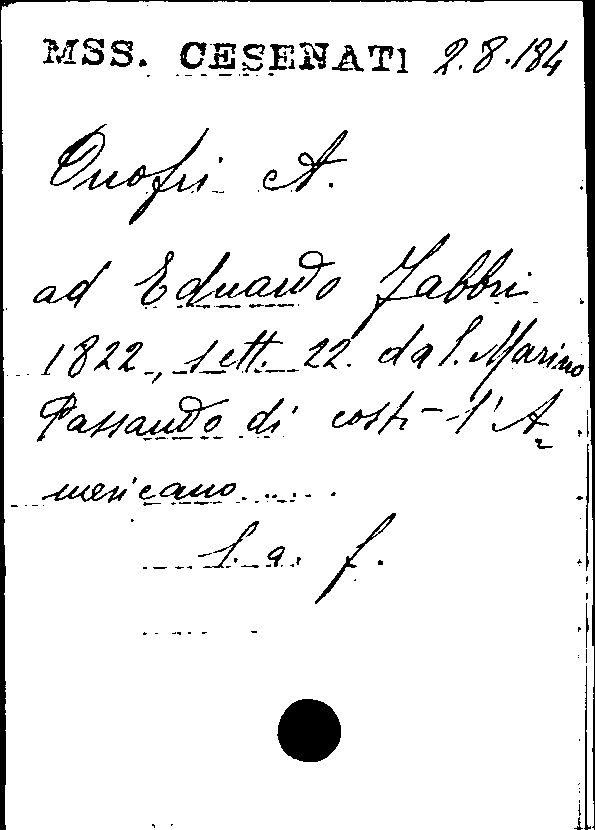 MSS. CESENATI 2.8.184
Onofri A.
ad Eduardo Fabbri
1822, sett. 22. da S. Marino
Passando di costì l'A=
mericano.....
L. a. f.